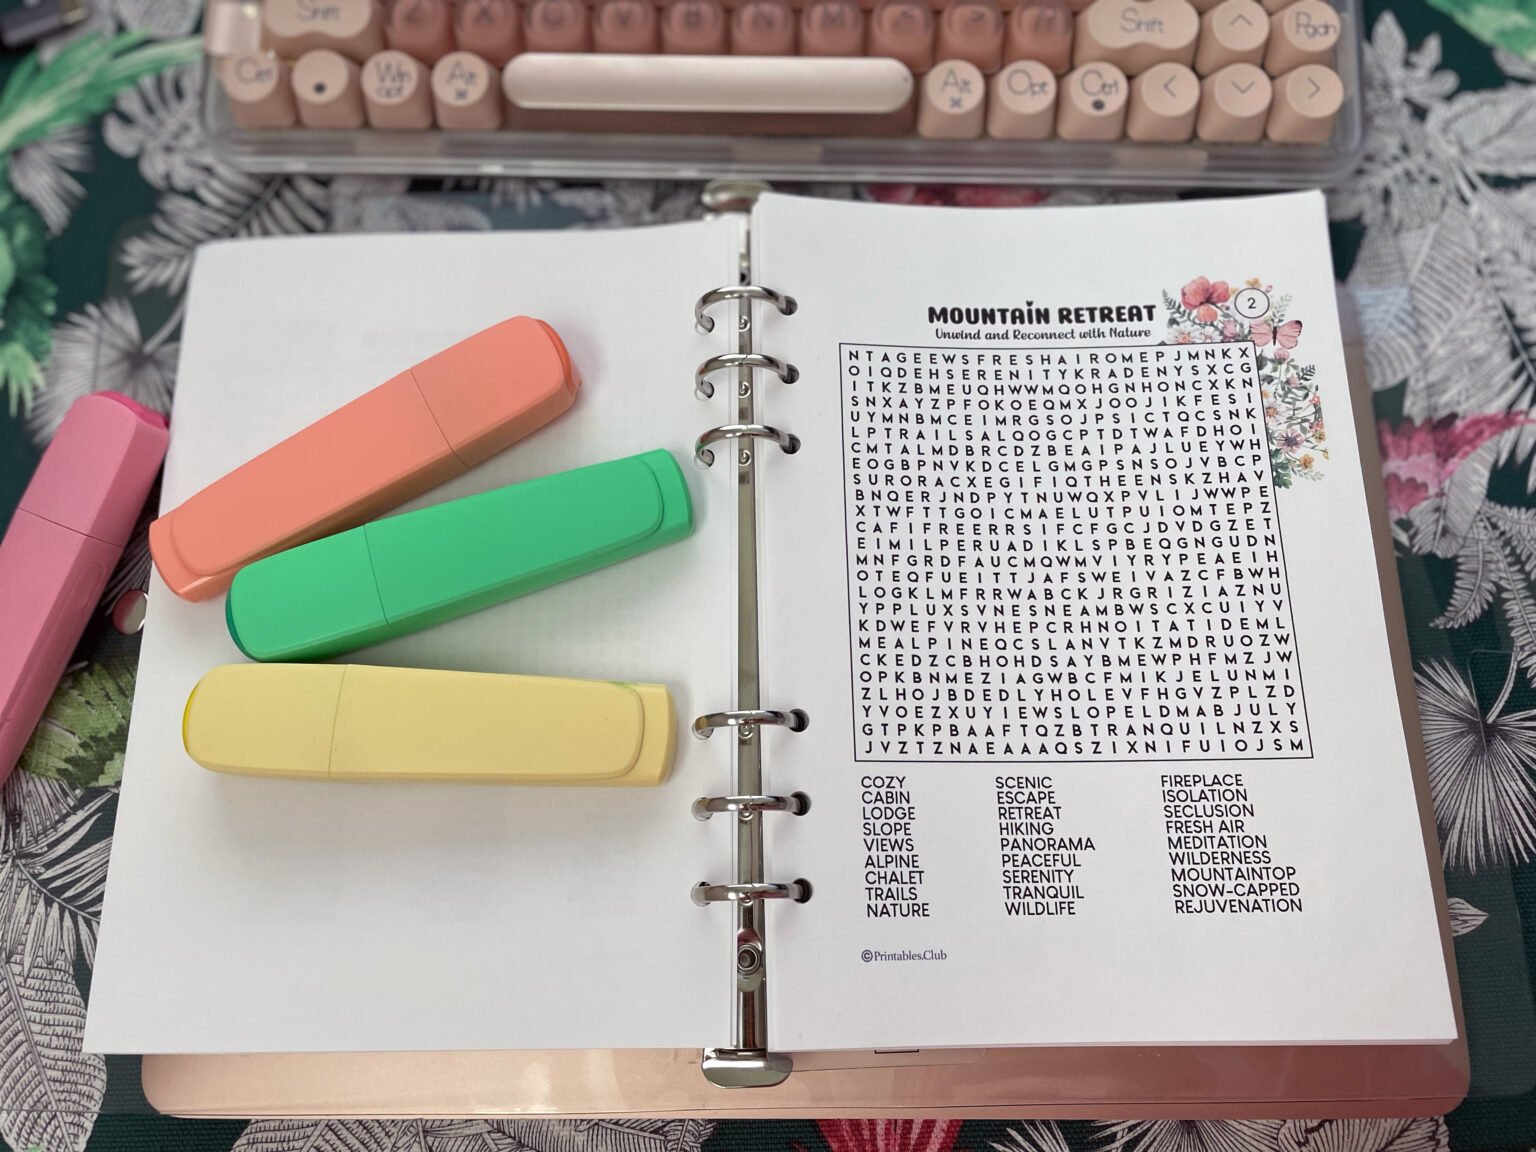 Shift Z X C V B N M < > /? Shift ^ Pgdn
Ctrl Win opt Alt Alt Opt Ctrl < >
MOUNTAIN RETREAT
2
Unwind and Reconnect with Nature
NTAGEEWSFRESHAIROMEPJMNKX
OIQDEHSERENITYKRADENYSXCG
ITKZBMEUQHWWMQOHGNHONCXKN
SNXAYZPFOKOEQMXJOOJIKFESI
UYMNBMCEIMRGSOJPSICTQCSNK
LPTRAILSALQOGCPTDTWAFDHOI
CMTALMDBRCDZBEAIPAJLUEYWH
EOGBPNVKDCELGMGPSNSOJVBCP
SURORACXEGIFIQTHEENSKZHAV
BNQERJNDPYTNUWQXPVLIJWWPE
XTWFTTGOICMAELUTPUIOMTEPZ
CAFIFREERRSIFCFGCJDVDGZET
EIMILPERUADIKLSPBEQGNGUDN
MNFGRDFAUCMQWMVIYRYPEAEIH
OTEQFUEITTJAFSWEIVAZCFBWH
LOGKLMFRRWABCKJRGRIZIAZNU
YPPLUXSVNESNEAMBWSCXCUIYV
KDWEFVRVHEPCRHNOITATIDEML
MEALPINEQCSLANVTKZMDRUOZW
CKEDZCBHOHDSAYBMEWPHFMZJW
OPKBNMEZIAGWBCFMIKJELUNMI
ZLHOJBDEDLYHOLEVFHGVZPLZD
YVOEZXUYIEWSLOPELDMABJULY
GTPKPBAAFTQZBTRANQUILNZXS
JVZTZNAEAAAQSZIXNIFUIOJSM
COZY SCENIC FIREPLACE
CABIN ESCAPE ISOLATION
LODGE RETREAT SECLUSION
SLOPE HIKING FRESH AIR
VIEWS PANORAMA MEDITATION
ALPINE PEACEFUL WILDERNESS
CHALET SERENITY MOUNTAINTOP
TRAILS TRANQUIL SNOW-CAPPED
NATURE WILDLIFE REJUVENATION
©Printables.Club